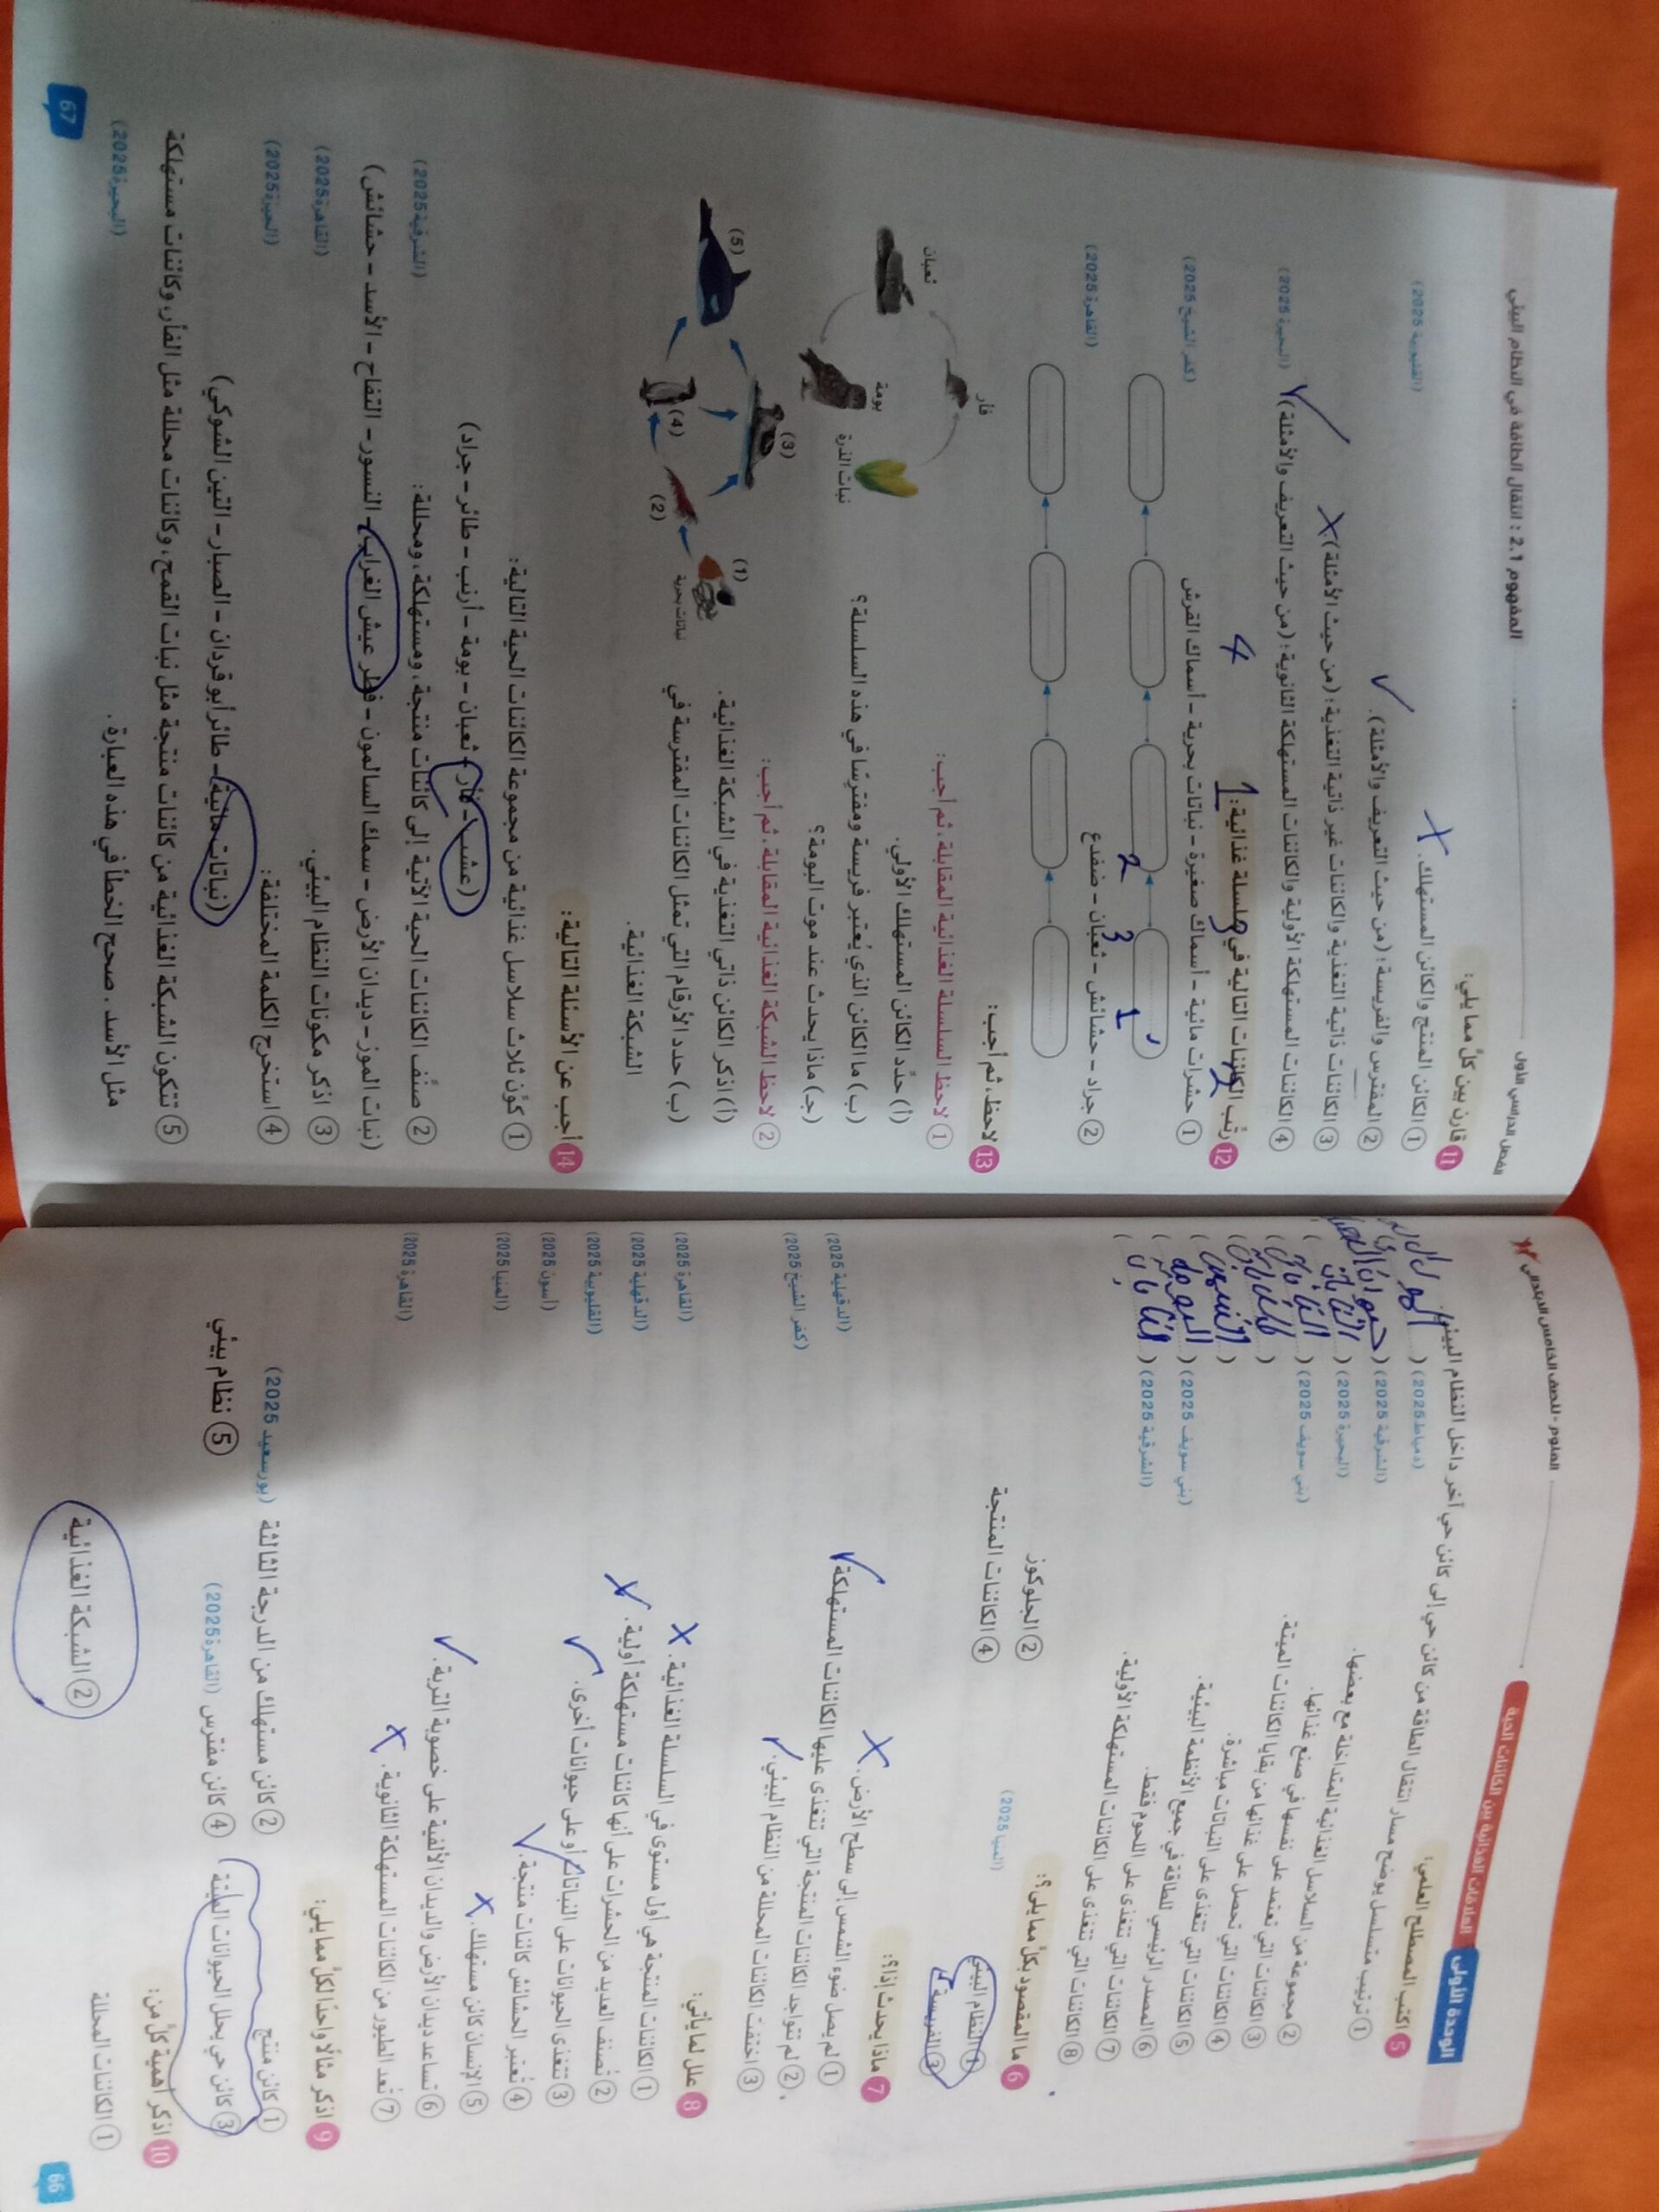 العلوم - للصف الخامس الابتدائي
الوحدة الأولى
العلاقات الغذائية بين الكائنات الحية
5 اكتب المصطلح العلمي:
1 ترتيب متسلسل يوضح مسار انتقال الطاقة من كائن حي إلى كائن حي آخر داخل النظام البيئي.
(دمياط 2025)
2 مجموعة من السلاسل الغذائية المتداخلة مع بعضها. (الشرقية 2025)
3 الكائنات التي تعتمد على نفسها في صنع غذائها. (البحيرة 2025)
4 الكائنات التي تحصل على غذائها من بقايا الكائنات الميتة. (بني سويف 2025)
5 الكائنات التي تتغذى على النباتات مباشرة.
6 المصدر الرئيسي للطاقة في جميع الأنظمة البيئية.
7 الكائنات التي تتغذى على اللحوم فقط. (بني سويف 2025)
8 الكائنات التي تتغذى على الكائنات المستهلكة الأولية. (الشرقية 2025)
6 ما المقصود بكلٍّ مما يلي؟:
1 النظام البيئي (المنيا 2025) 2 الجلوكوز
3 الفريسة 4 الكائنات المنتجة
7 ماذا يحدث إذا؟:
1 لم يصل ضوء الشمس إلى سطح الأرض. X
2 لم تتواجد الكائنات المنتجة التي تتغذى عليها الكائنات المستهلكة ✓ (الدقهلية 2025)
3 اختفت الكائنات المحللة من النظام البيئي. ✓ (كفر الشيخ 2025)
8 علل لما يأتي:
1 الكائنات المنتجة هي أول مستوى في السلسلة الغذائية. X (القاهرة 2025)
2 تُصنف العديد من الحشرات على أنها كائنات مستهلكة أولية. X (الدقهلية 2025)
3 تتغذى الحيوانات على النباتات أو على حيوانات أخرى. ✓ (القليوبية 2025)
4 تُعتبر الحشائش كائنات منتجة. ✓ (أسون 2025)
5 الإنسان كائن مستهلك. X (المنيا 2025)
6 تساعد ديدان الأرض والديدان الألفية على خصوبة التربة. ✓
7 تُعد الطيور من الكائنات المستهلكة الثانوية. X (القاهرة 2025)
9 اذكر مثالًا واحدًا لكلٍّ مما يلي:
1 كائن منتج 2 كائن مستهلك من الدرجة الثالثة (بورسعيد 2025)
3 كائن حي يحلل الحيوانات الميتة (القاهرة 2025) 4 كائن مفترس 5 نظام بيئي
10 اذكر أهمية كلٍّ من:
1 الكائنات المحللة 2 الشبكة الغذائية
66
الفصل الدراسي الأول
المفهوم 2.1 : انتقال الطاقة في النظام البيئي
11 قارن بين كلٍّ مما يلي:
1 الكائن المنتج والكائن المستهلك. X (القليوبية 2025)
2 المفترس والفريسة؛ (من حيث التعريف والأمثلة). ✓
3 الكائنات ذاتية التغذية والكائنات غير ذاتية التغذية؛ (من حيث الأمثلة). X
4 الكائنات المستهلكة الأولية والكائنات المستهلكة الثانوية؛ (من حيث التعريف والأمثلة) ✓ (البحيرة 2025)
12 رتب الكائنات التالية في سلسلة غذائية:
2 1 4
1 حشرات مائية - أسماك صغيرة - نباتات بحرية - أسماك القرش (كفر الشيخ 2025)
1 3 2
2 جراد - حشائش - ثعبان - ضفدع (القاهرة 2025)
13 لاحظ، ثم أجب:
1 لاحظ السلسلة الغذائية المقابلة، ثم أجب:
(أ) حدِّد الكائن المستهلك الأولي.
(ب) ما الكائن الذي يُعتبر فريسة ومفترسًا في هذه السلسلة؟
(جـ) ماذا يحدث عند موت البومة؟
فأر
ثعبان
بومة
نبات الذرة
2 لاحظ الشبكة الغذائية المقابلة، ثم أجب:
(أ) اذكر الكائن ذاتي التغذية في الشبكة الغذائية.
(ب) حدد الأرقام التي تمثل الكائنات المفترسة في
الشبكة الغذائية.
(1)
نباتات بحرية
(2)
(3)
(4)
(5)
14 أجب عن الأسئلة التالية:
1 كوِّن ثلاث سلاسل غذائية من مجموعة الكائنات الحية التالية:
(عشب - فأر - ثعبان - بومة - أرنب - طائر - جراد)
2 صنِّف الكائنات الحية الآتية إلى كائنات منتجة، ومستهلكة، ومحللة: (الشرقية 2025)
(نبات الموز - ديدان الأرض - سمك السالمون - فطر عيش الغراب - النسور - التفاح - الأسد - حشائش)
3 اذكر مكونات النظام البيئي. (القاهرة 2025)
4 استخرج الكلمة المختلفة: (الجيزة 2025)
(نباتات مائية - طائر أبو قردان - الصبار - التين الشوكي)
5 تتكون الشبكة الغذائية من كائنات منتجة مثل نبات القمح، وكائنات محللة مثل الفأر، وكائنات مستهلكة
مثل الأسد. صحح الخطأ في هذه العبارة. (البحيرة 2025)
67